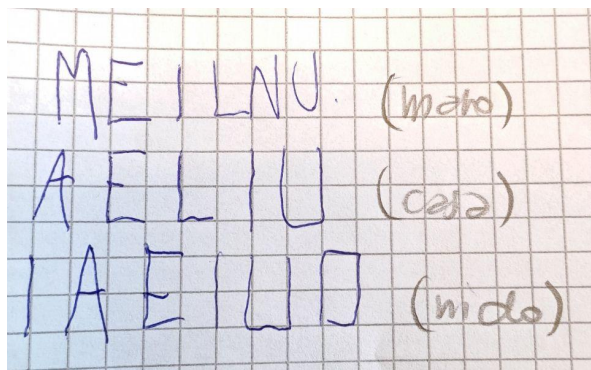 MEILNU. (mano)
AELIU (casa)
IAEIUO (nido)